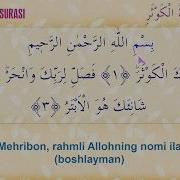 SURASI ةُ الْكَوْثَرِ
بِسْمِ اللَّهِ الرَّحْمَٰنِ الرَّحِيمِ
كَ الْكَوْثَرَ ﴿١﴾ فَصَلِّ لِرَبِّكَ وَانْحَرْ
شَانِئَكَ هُوَ الْأَبْتَرُ ﴿٣﴾
Mehribon, rahmli Allohning nomi ila
(boshlayman)